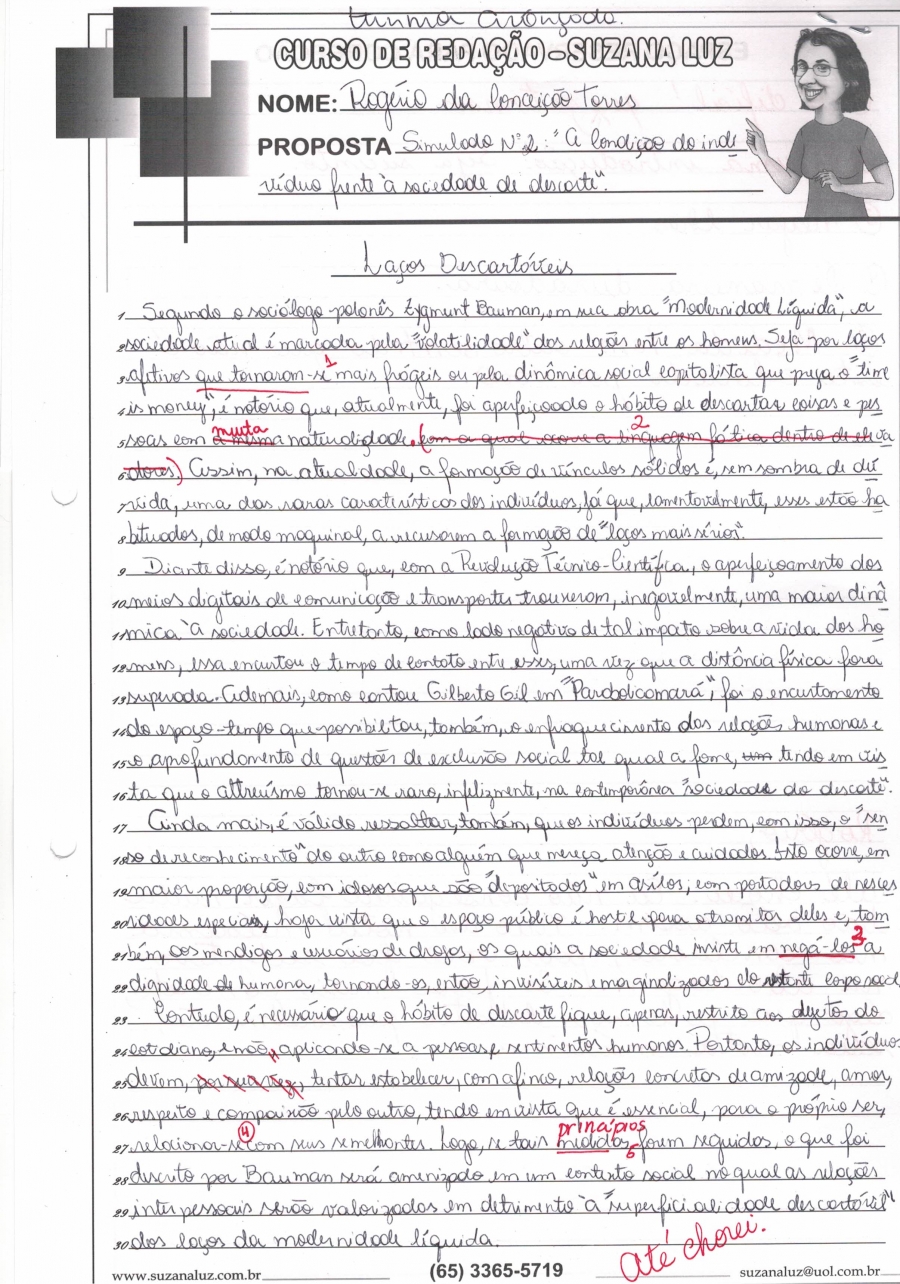 turma avançada.
CURSO DE REDAÇÃO-SUZANA LUZ
NOME: Rogério da Conceição Torres
PROPOSTA Simulado Nº2: "A Condição do indi
víduo frente à sociedade de descarte".
Laços Descartáveis
1 Segundo o sociólogo polonês Zygmunt Bauman, em sua obra "Modernidade Líquida", a
2 sociedade atual é marcada pela "volatilidade" das relações entre os homens. Seja por laços
3 afetivos que tornaram-se 1 mais frágeis ou pela dinâmica social capitalista que prega o "time
4 is money", é notório que, atualmente, foi aperfeiçoado o hábito de descartar coisas e pes
muita 2
5 soas com a mesma naturalidade. (com a qual ocorre a linguagem fática dentro de eleva
6 dores.) Assim, na atualidade, a formação de vínculos sólidos é, sem sombra de dú
7 vida, uma das raras características dos indivíduos, já que, lamentavelmente, esses estão ha
8 bituados, de modo maquinal, a recusarem a formação de "laços mais sérios".
9 Diante disso, é notório que, com a Revolução Técnico-Científica, o aperfeiçoamento dos
10 meios digitais de comunicação e transportes trouxeram, inegavelmente, uma maior dinâ
11 mica à sociedade. Entretanto, como lado negativo de tal impacto sobre a vida dos ho
12 mens, essa encurtou o tempo de contato entre esses, uma vez que a distância física fora
13 superada. Ademais, como cantou Gilberto Gil em "Parabolicamará", foi o encurtamento
14 do espaço-tempo que possibilitou, também, o enfraquecimento das relações humanas e
15 o aprofundamento de questões de exclusão social tal qual a fome, um tendo em vis
16 ta que o altruísmo tornou-se raro, infelizmente, na contemporânea "sociedade do descarte".
17 Ainda mais, é válido ressaltar, também, que os indivíduos perdem, com isso, o "sen
18 so de reconhecimento" do outro como alguém que mereça atenção e cuidados. Isto ocorre, em
19 maior proporção, com idosos que são "depositados" em asilos; com portadores de neces
20 sidades especiais, haja vista que o espaço público é hostil para o tramitar deles e, tam
21 bém, aos mendigos e usuários de drogas, os quais a sociedade insiste em negá-los 3 a
22 dignidade humana, tornando-os, então, invisíveis e marginalizados do corpo social
23 Contudo, é necessário que o hábito de descarte fique, apenas, restrito aos dejetos do
24 cotidiano, e não, aplicando-se a pessoas e sentimentos humanos. Portanto, os indivíduos
25 devem, por sua vez, tentar estabelecer, com afinco, relações concretas de amizade, amor,
26 respeito e compaixão pelo outro, tendo em vista que é essencial, para o próprio ser,
4 princípios
27 relacionar-se com seus semelhantes. Logo, se tais medidas 5 forem seguidas, o que foi
28 descrito por Bauman será amenizado em um contexto social no qual as relações
29 interpessoais serão valorizadas em detrimento à "superficialidade descartável"
30 dos laços da modernidade líquida.
Até chorei.
www.suzanaluz.com.br (65) 3365-5719 suzanaluz@uol.com.br